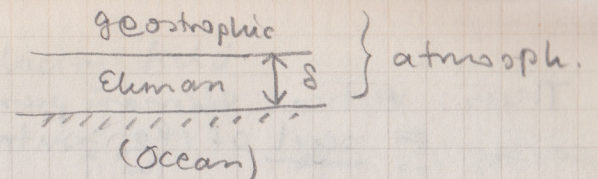 geostrophic
Ekman δ } atmosph.
(Ocean)